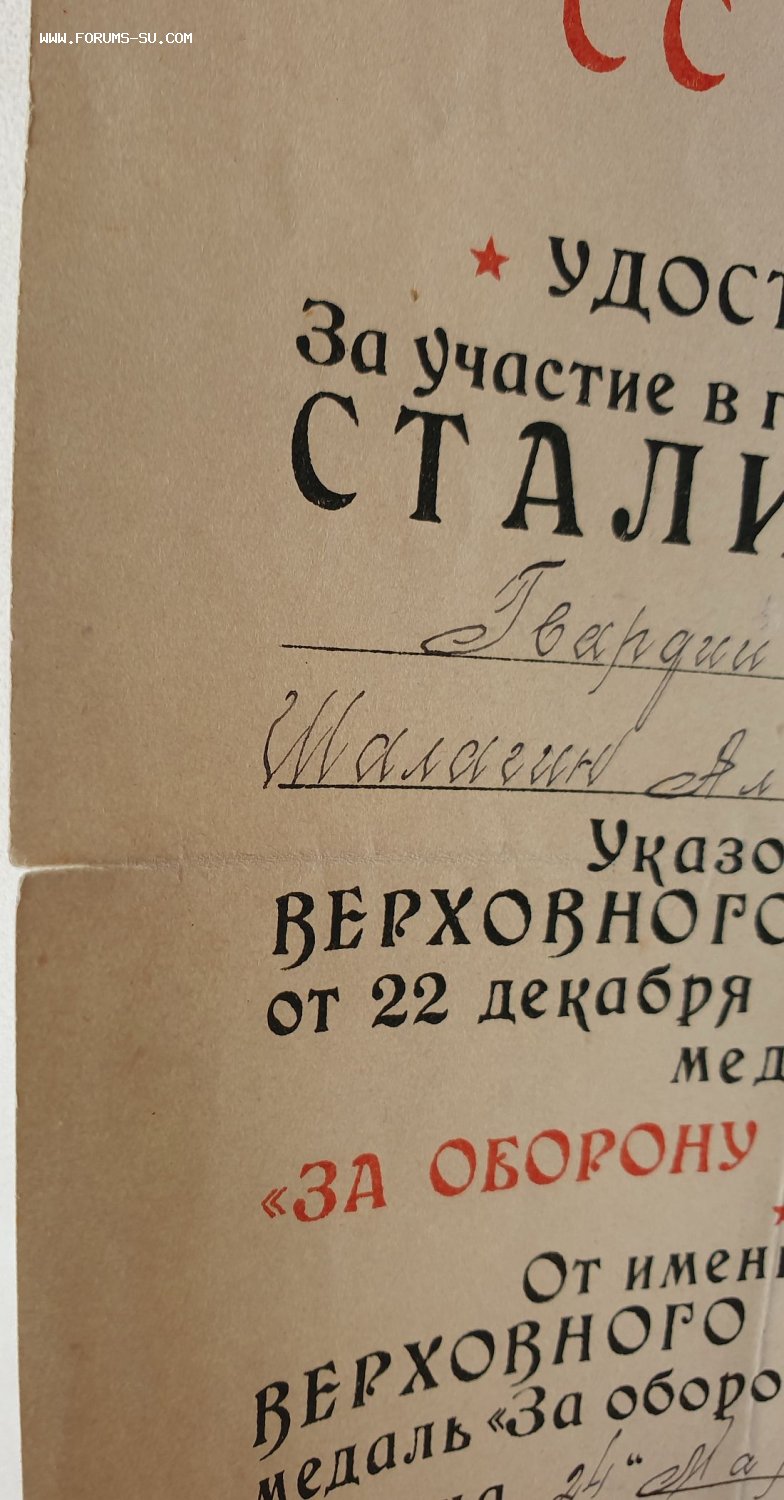 WWW.FORUMS-SU.COM
СС
УДОСТ
За участие в г
СТАЛИ
Гвардии
Шалагин Ал
Указо
ВЕРХОВНОГО
от 22 декабря
мед
«ЗА ОБОРОНУ
От имени
ВЕРХОВНОГО
медаль «За оборо
на 24 " Мар